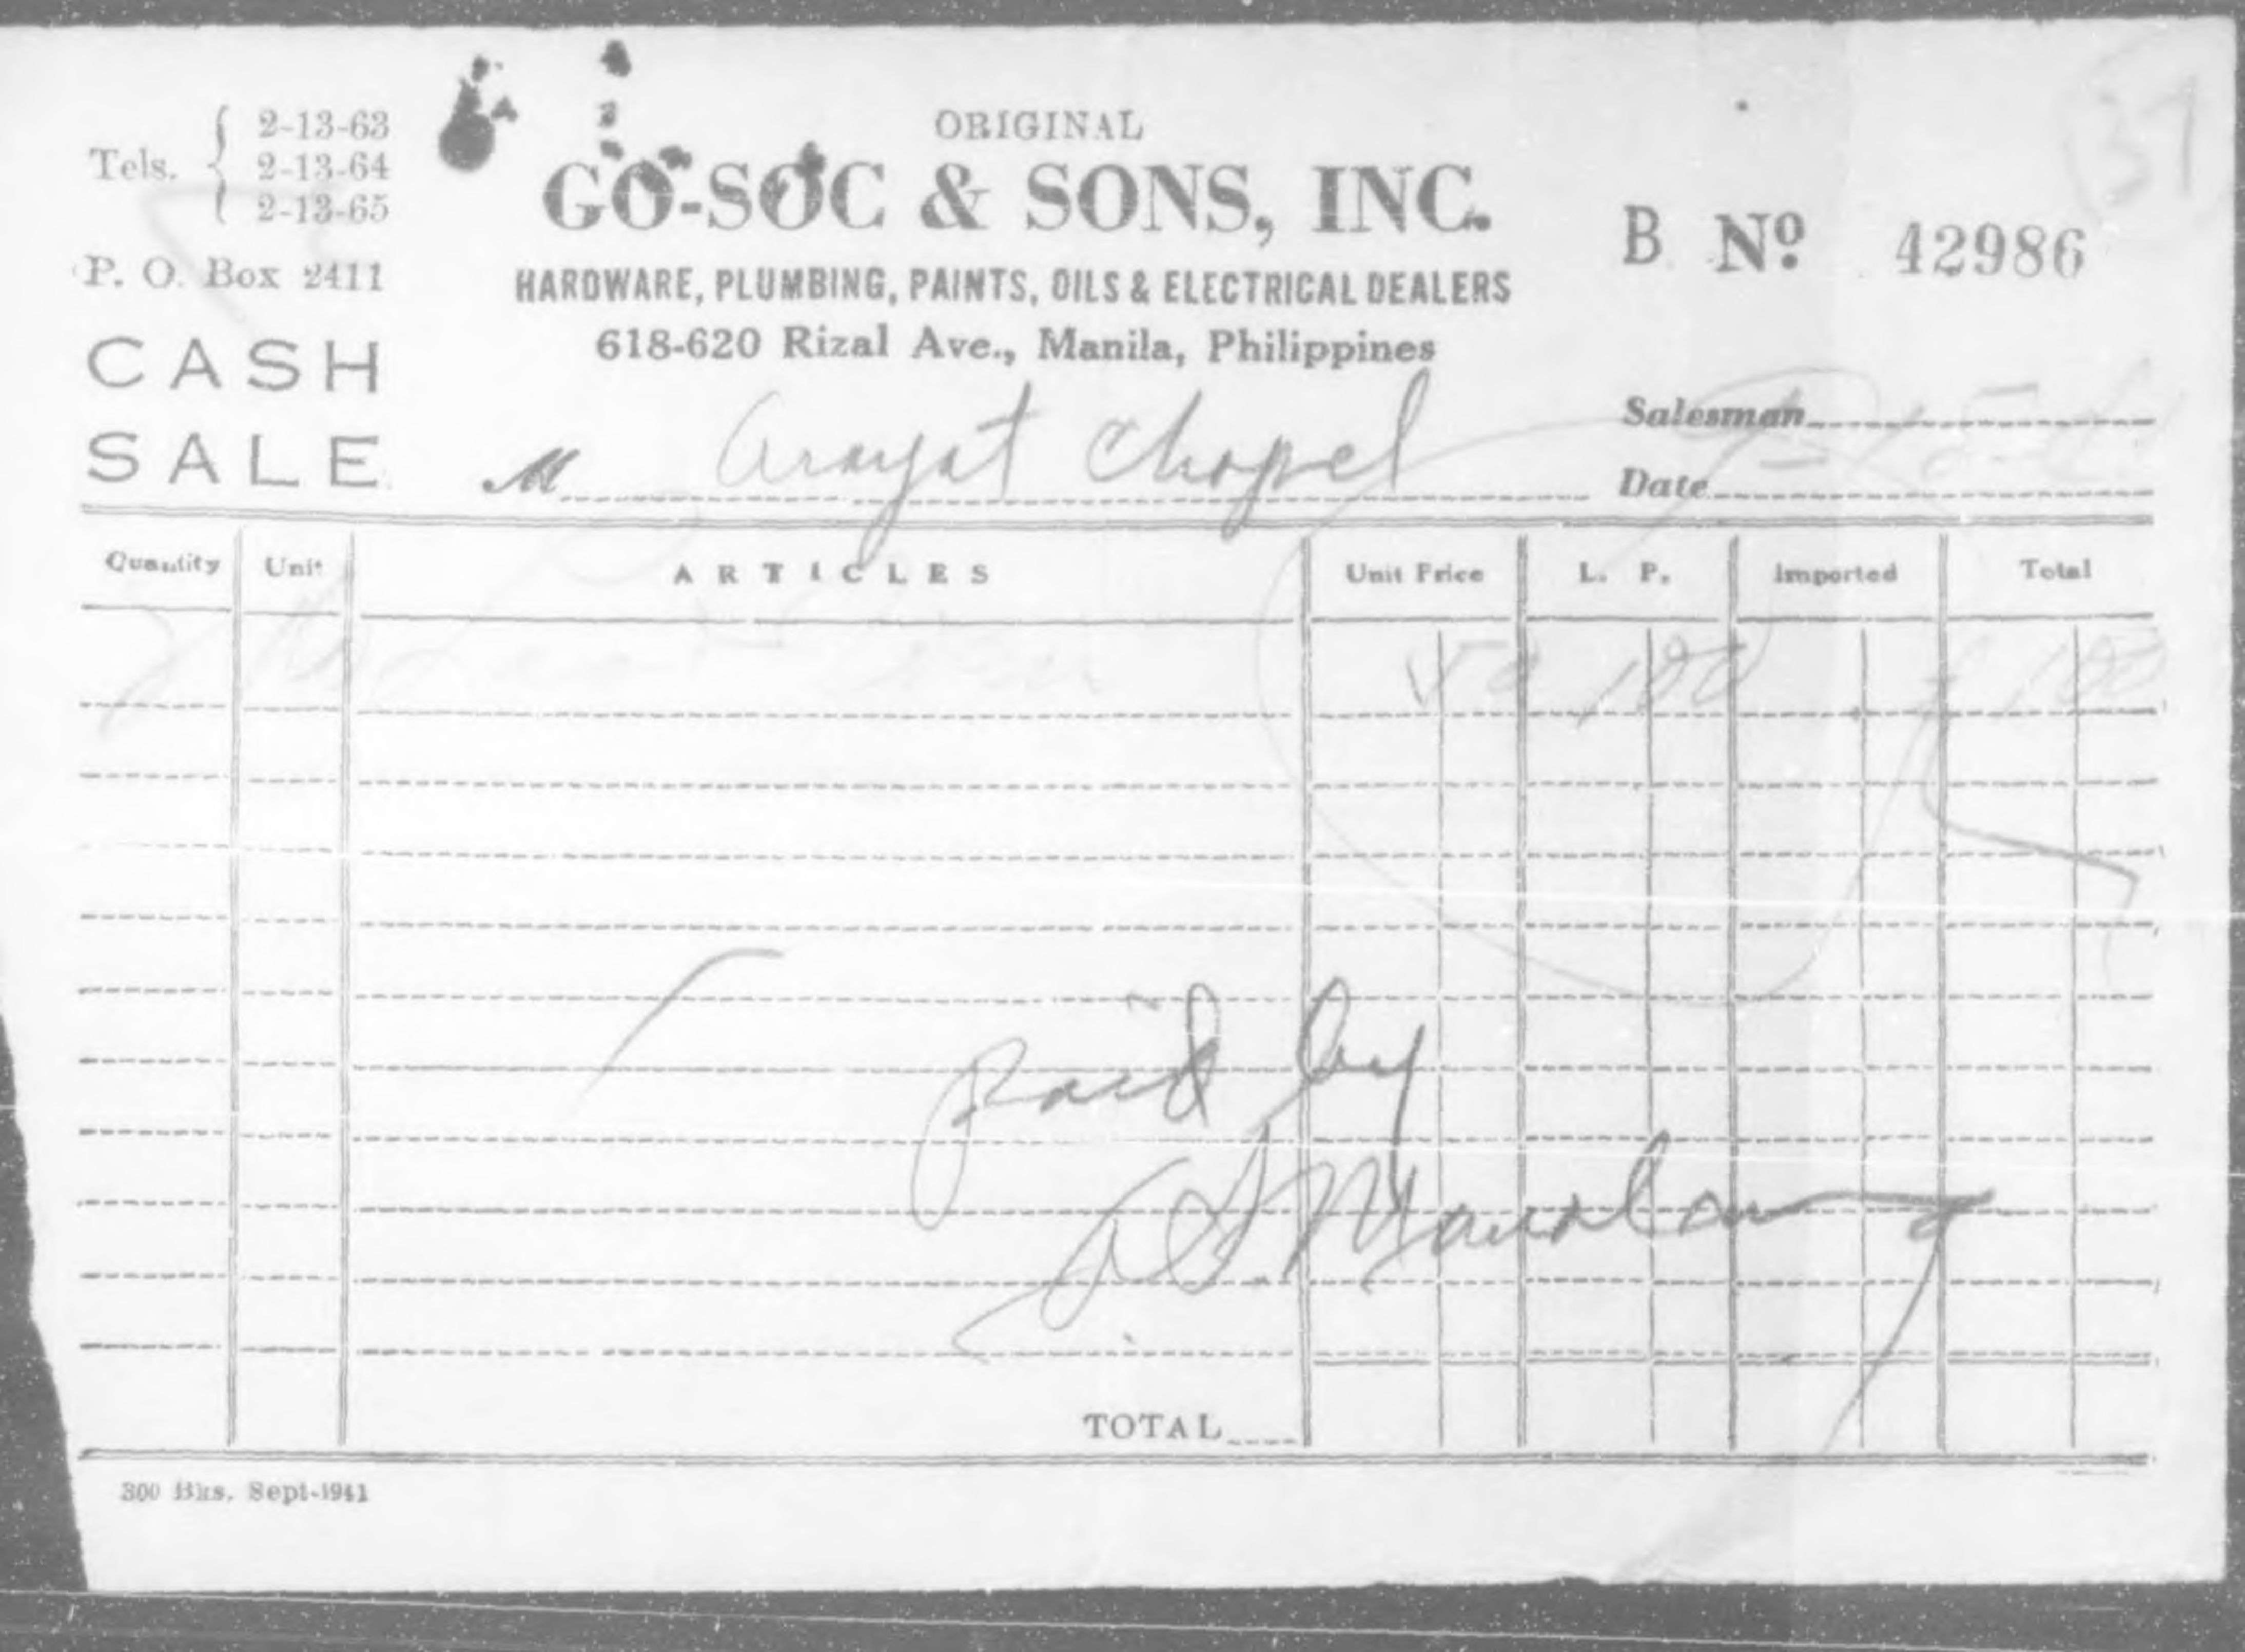 37
Tels. 2-13-63
2-13-64
2-13-65
P. O. Box 2411
ORIGINAL
GO-SOC & SONS, INC.
HARDWARE, PLUMBING, PAINTS, OILS & ELECTRICAL DEALERS
618-620 Rizal Ave., Manila, Philippines
B Nº 42986
CASH
SALE
M Arayat Chapel
Salesman
Date
Quantity Unit ARTICLES Unit Price L. P. Imported Total
2 50 100 100
paid by
TOTAL
300 Bks. Sept-1941